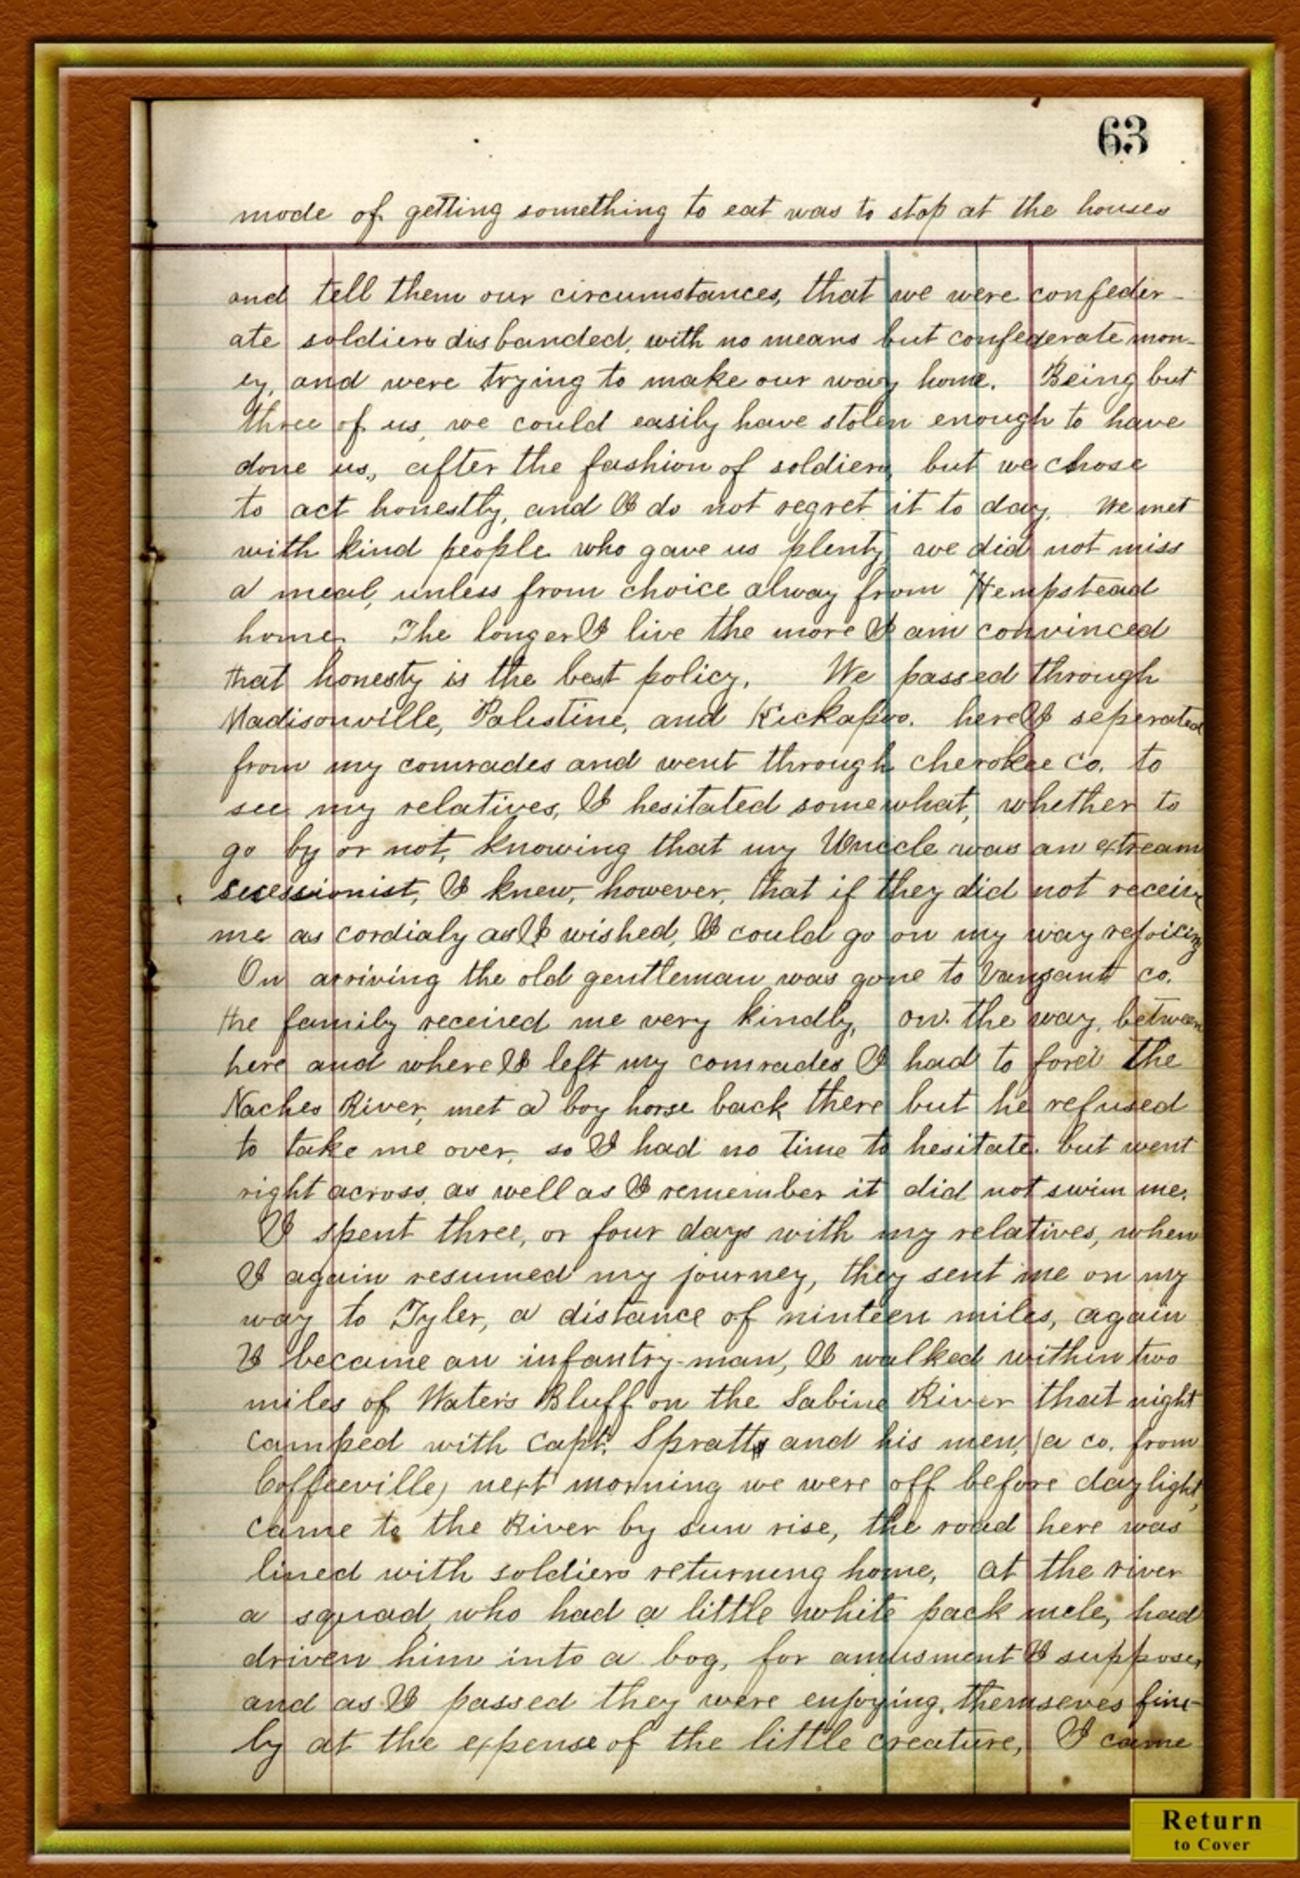 63
mode of getting something to eat was to stop at the houses
and tell them our circumstances, that we were confeder-
ate soldiers disbanded, with no means but confederate mon-
ey, and were trying to make our way home. Being but
three of us, we could easily have stolen enough to have
done us, after the fashion of soldiers, but we chose
to act honestly, and I do not regret it to day. We met
with kind people who gave us plenty, we did not miss
a meal, unless from choice alway from Hempstead
home. The longer I live the more I am convinced
that honesty is the best policy. We passed through
Madisonville, Palestine, and Kickapoo. here I seperated
from my comrades and went through cherokee co. to
see my relatives, I hesitated somewhat, whether to
go by or not, knowing that my Unccle was an extream
secessionist, I knew, however, that if they did not receive
me as cordialy as I wished, I could go on my way rejoicing
On arriving the old gentleman was gone to Vanzant co.
the family received me very kindly, on the way, between
here and where I left my comrades I had to ford the
Naches River, met a boy horse back there but he refused
to take me over, so I had no time to hesitate. but went
right across, as well as I remember it did not swim me.
I spent three, or four days with my relatives, when
I again resumed my journey, they sent me on my
way to Tyler, a distance of ninteen miles, again
I became an infantry-man, I walked within two
miles of Waters Bluff on the Sabine River that night
camped with Capt. Spratts and his men, (a co. from
Coffeeville) next morning we were off before day light,
came to the River by sun rise, the road here was
lined with soldiers returning home, at the river
a squad, who had a little white pack mule, had
driven him into a bog, for amusment I suppose,
and as I passed they were enjoying themseves fine-
ly at the expense of the little creature, I came
Return
to Cover